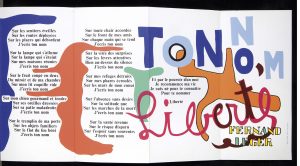 Sur les sentiers éveillés
Sur les routes déployées
Sur les places qui débordent
J'écris ton nom
Sur la lampe qui s'allume
Sur la lampe qui s'éteint
Sur mes maisons réunies
J'écris ton nom
Sur le fruit coupé en deux
Du miroir et de ma chambre
Sur mon lit coquille vide
J'écris ton nom
Sur mon chien gourmand et tendre
Sur ses oreilles dressées
Sur sa patte maladroite
J'écris ton nom
Sur le tremplin de ma porte
Sur les objets familiers
Sur le flot du feu béni
J'écris ton nom
Sur toute chair accordée
Sur le front de mes amis
Sur chaque main qui se tend
J'écris ton nom
Sur la vitre des surprises
Sur les lèvres attentives
Bien au-dessus du silence
J'écris ton nom
Sur mes refuges détruits
Sur mes phares écroulés
Sur les murs de mon ennui
J'écris ton nom
Sur l'absence sans désir
Sur la solitude nue
Sur les marches de la mort
J'écris ton nom
Sur la santé revenue
Sur le risque disparu
Sur l'espoir sans souvenir
J'écris ton nom
TON NOM
Et par le pouvoir d'un mot
Je recommence ma vie
Je suis né pour te connaître
Pour te nommer
Liberté
Liberté
FERNAND
LEGER